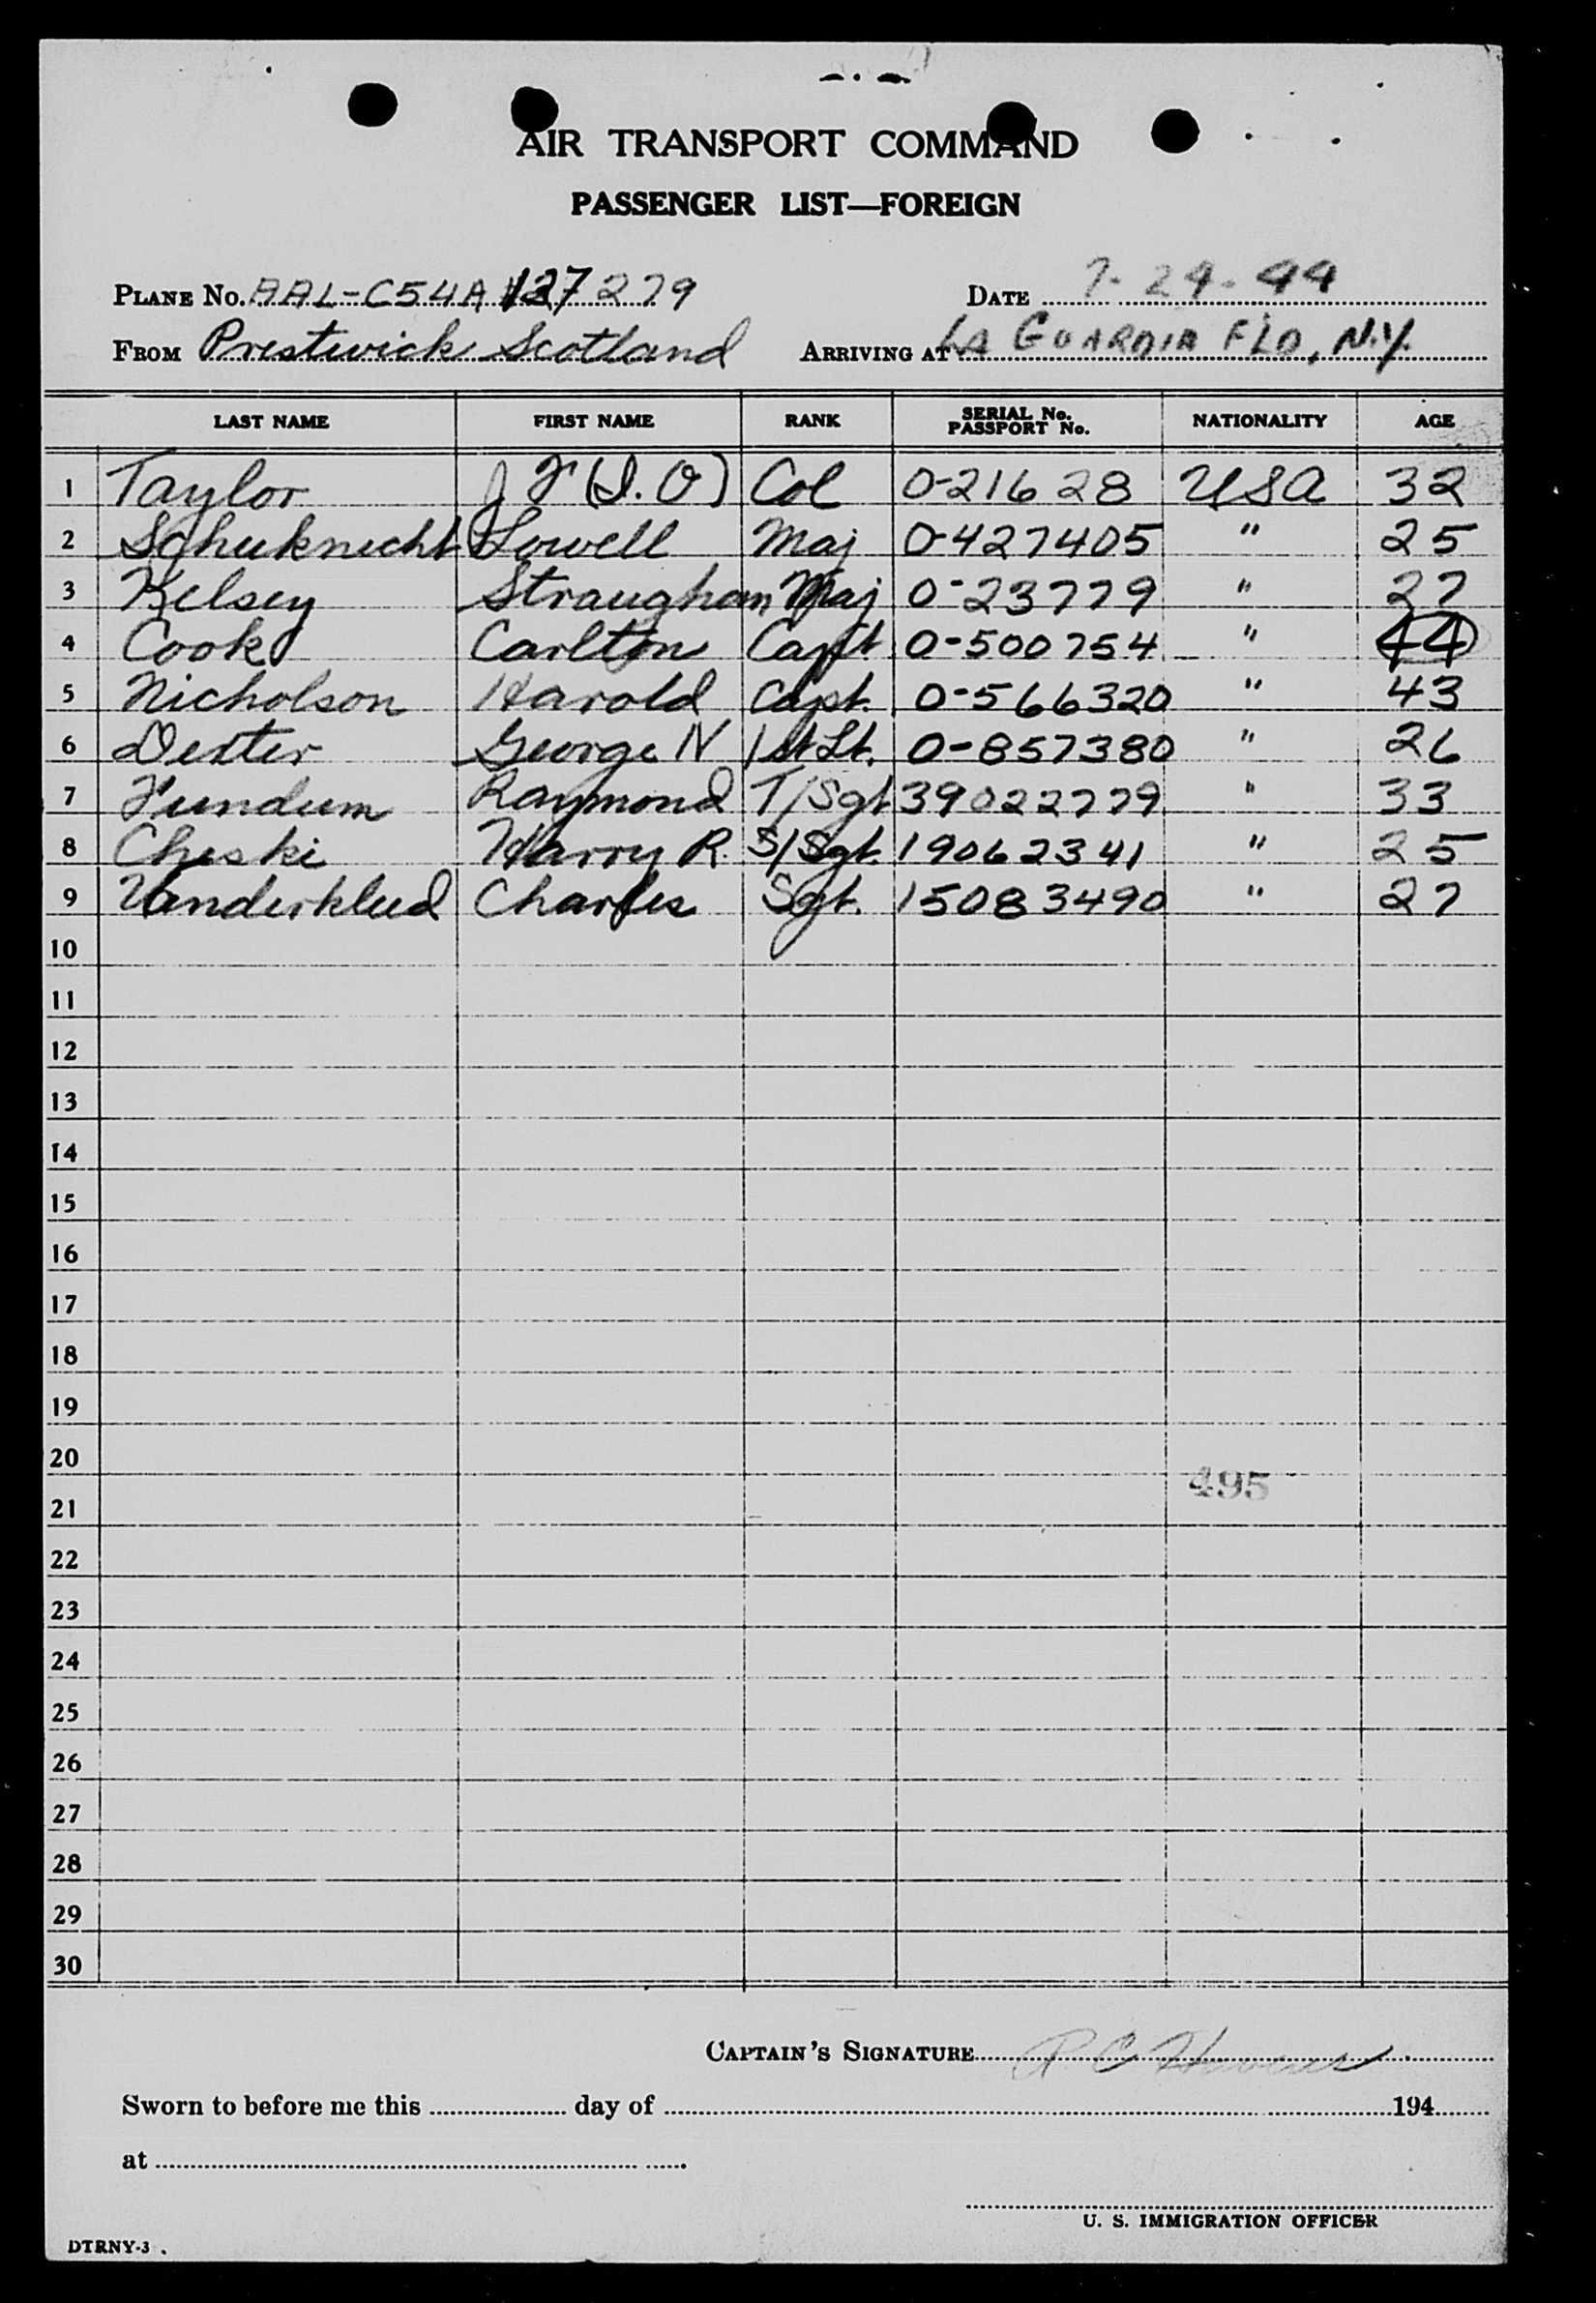 AIR TRANSPORT COMMAND
PASSENGER LIST—FOREIGN
PLANE No. AAL-C54A 127279 DATE 7-24-44
FROM Prestwick Scotland ARRIVING AT LA GUARDIA FLD, N.Y.
LAST NAME FIRST NAME RANK SERIAL No. PASSPORT No. NATIONALITY AGE
1 Taylor J F (I.O) Col O-21628 USA 32
2 Schuknecht Lowell Maj O-427405 " 25
3 Kelsey Straughan Maj O-23779 " 27
4 Cook Carlton Capt O-500754 " 44
5 Nicholson Harold Capt. O-566320 " 43
6 Dexter George N 1st Lt. O-857380 " 26
7 Fundum Raymond T/Sgt 39022779 " 33
8 Cheski Harry R. S/Sgt. 19062341 " 25
9 Vanderklud Charles Sgt. 15083490 " 27
10
11
12
13
14
15
16
17
18
19
20
495
21
22
23
24
25
26
27
28
29
30
CAPTAIN'S SIGNATURE R C
Sworn to before me this day of 194
at
U. S. IMMIGRATION OFFICER
DTRNY-3